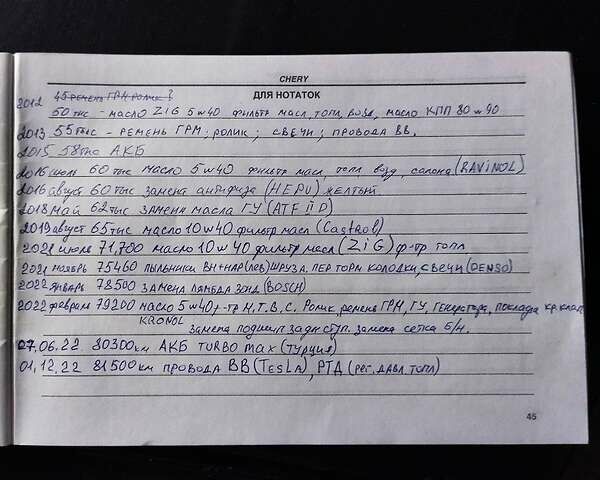 CHERY
ДЛЯ НОТАТОК
45 ремень ГРМ ролик ?
2012 50 тыс - масло ZiG 5w40 фильтр масл, топл, возд, масло КПП 80w90
2013 55 тыс - ремень ГРМ; ролик; свечи; провода ВВ.
2015 58 тыс АКБ
2016 июль 60 тыс масло 5w40 фильтр масл, топл, возд, салона (RAVINOL)
2016 август 60 тыс замена антифриза (HEPU) желтый
2018 май 62 тыс замена масла ГУ (ATF II D)
2019 август 65 тыс масло 10w40 фильтр масл (Castrol)
2021 июль 71,700 масло 10w40 фильтр масл (ZiG) ф-тр топл
2021 ноябрь 75460 пыльники вн+нар (лев) шруза, пер торм колодки, свечи (DENSO)
2022 январь 78500 замена лямбда зонд (BOSCH)
2022 февраль 79200 масло 5w40 ф-тр М, Т, В, С. Ролик, ремень ГРМ, ГУ, генератора, прокладка кр. клап
KROWL
замена подшип задн ступ. замена сетка б/н.
27.06.22 80300км АКБ TURBO max (Турция)
01.12.22 81500км провода ВВ (TESLA), РТД (рег. давл. топл)
45